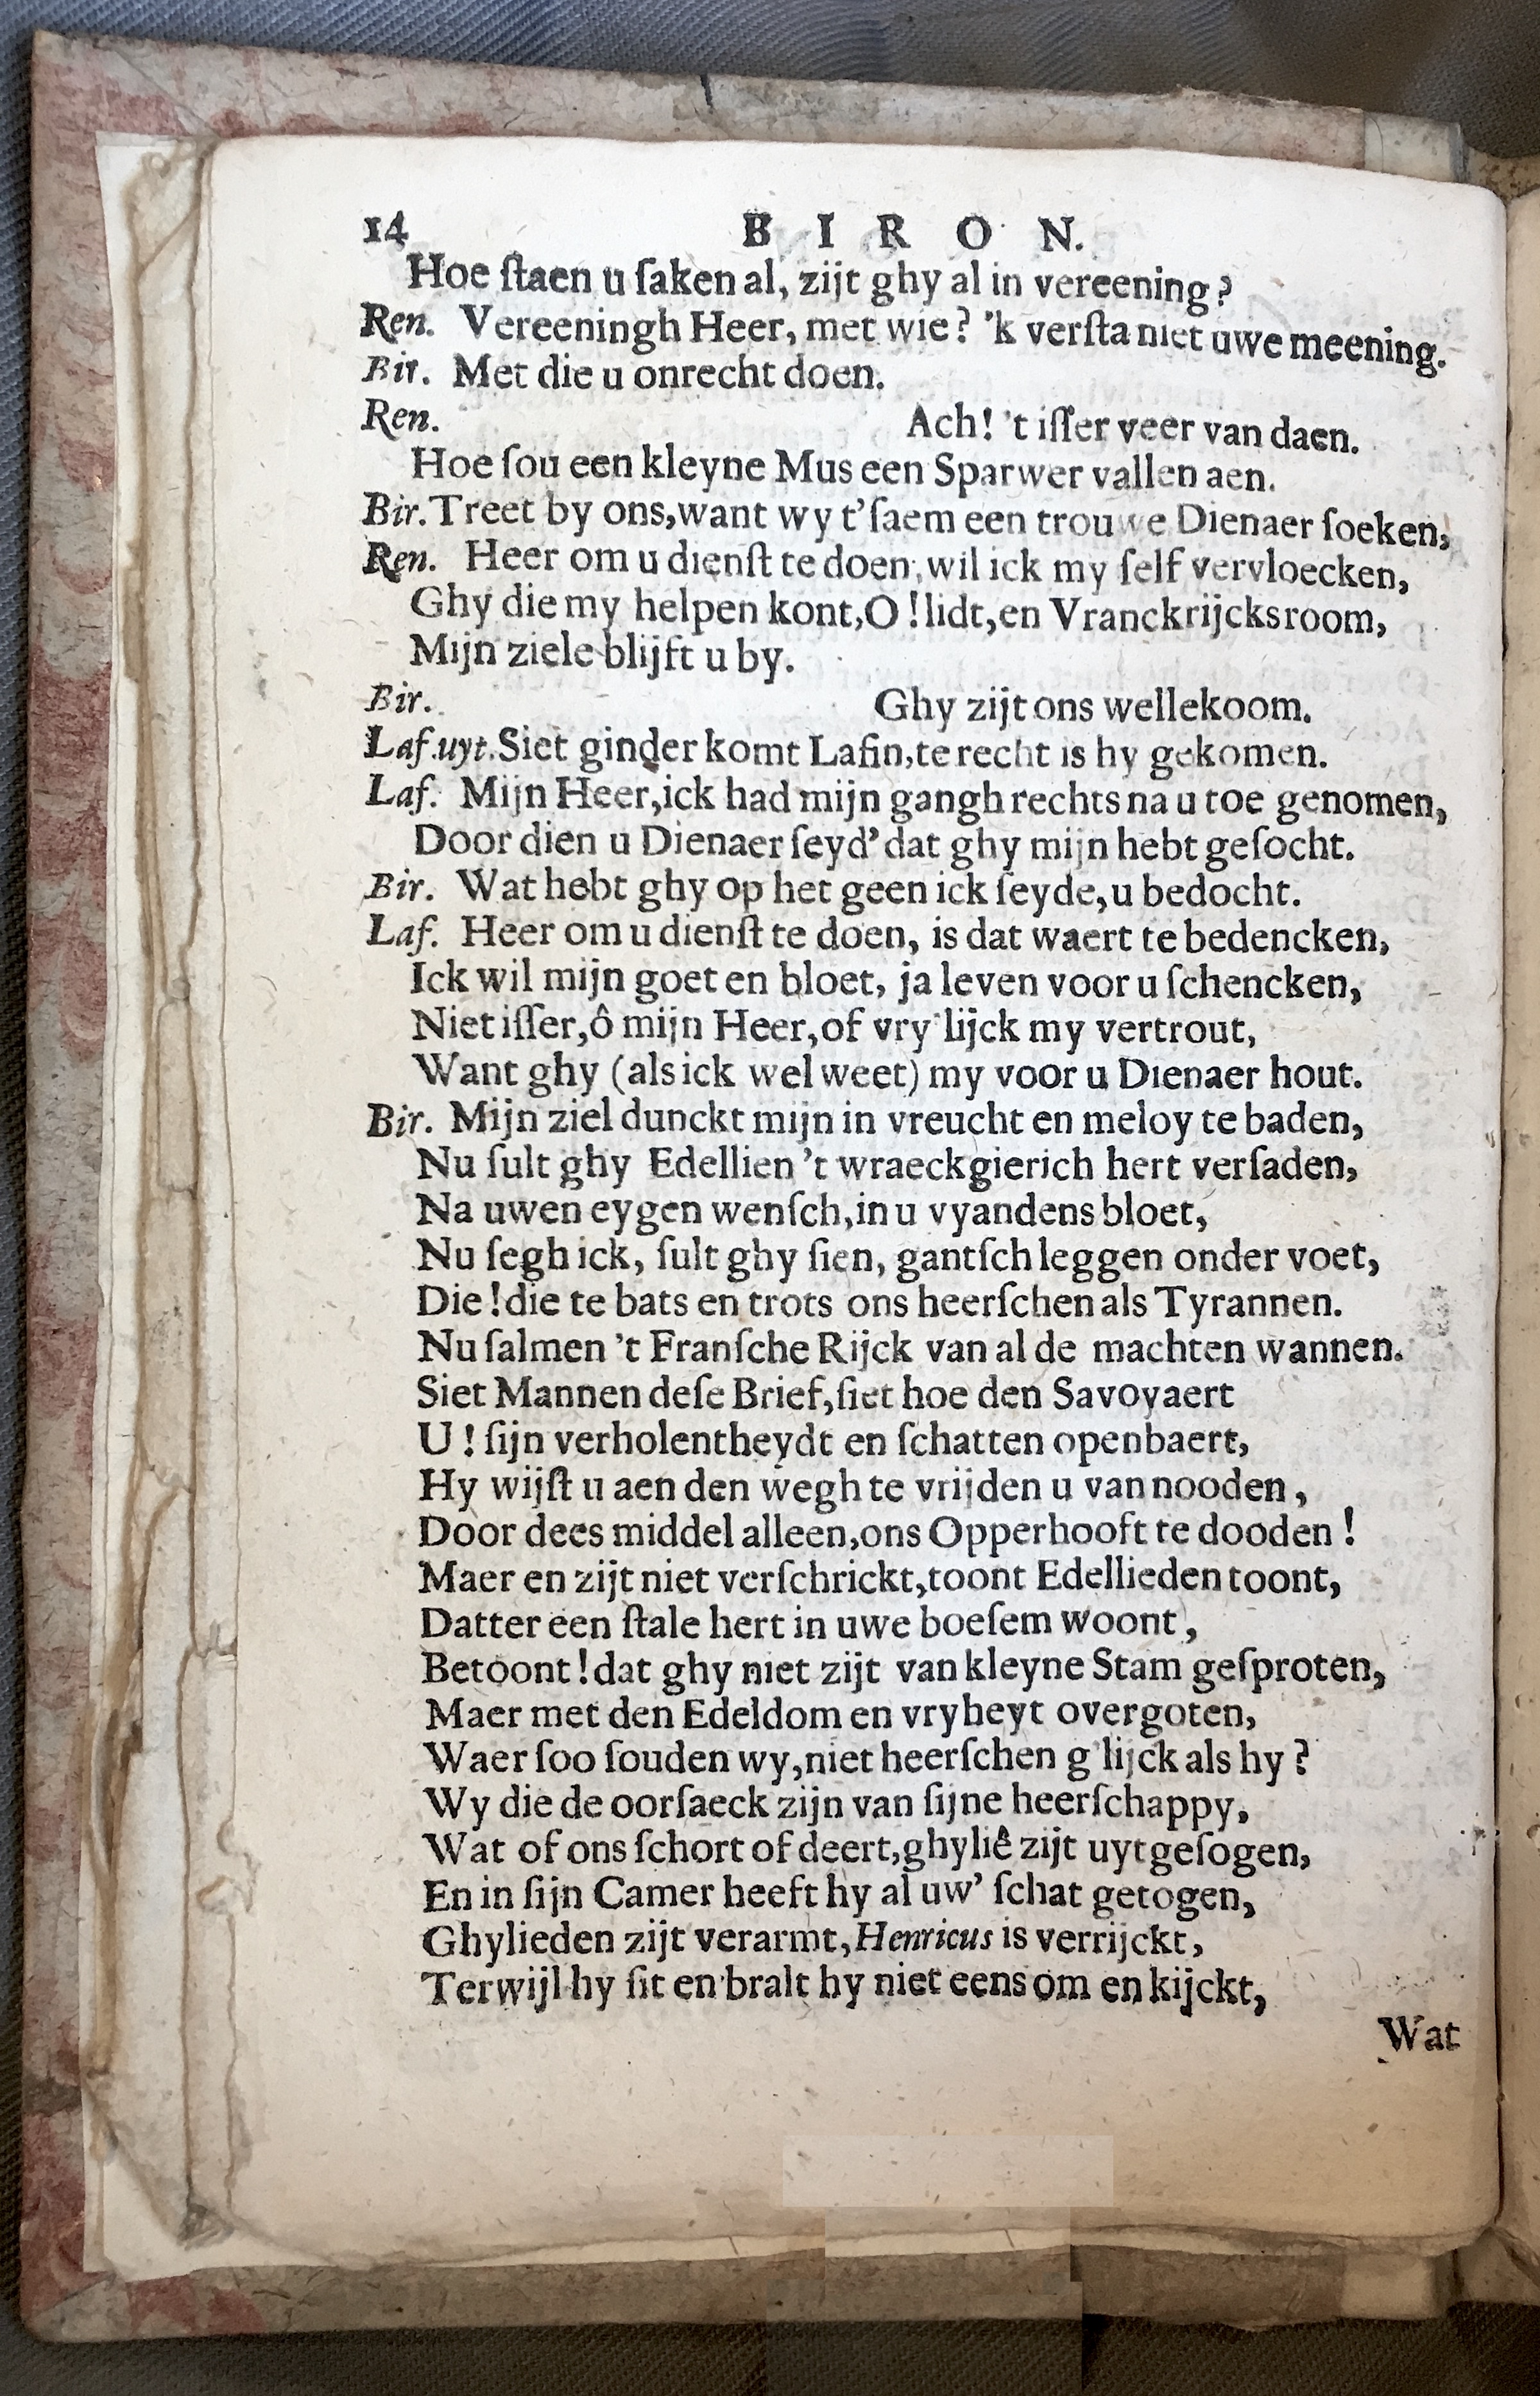 14 BIRON.
Hoe ſtaen u ſaken al, zijt ghy al in vereening?
Ren. Vereeningh Heer, met wie? 'k verſta niet uwe meening.
Bir. Met die u onrecht doen.
Ren. Ach! 't iſſer veer van daen.
Hoe ſou een kleyne Mus een Sparwer vallen aen.
Bir. Treet by ons, want wy t'ſaem een trouwe Dienaer ſoeken,
Ren. Heer om u dienſt te doen, wil ick my ſelf vervloecken,
Ghy die my helpen kont, O! lidt, en Vranckrijcksroom,
Mijn ziele blijft u by.
Bir. Ghy zijt ons wellekoom.
Laf.uyt. Siet ginder komt Lafin, te recht is hy gekomen.
Laf. Mijn Heer, ick had mijn gangh rechts na u toe genomen,
Door dien u Dienaer ſeyd' dat ghy mijn hebt geſocht.
Bir. Wat hebt ghy op het geen ick ſeyde, u bedocht.
Laf. Heer om u dienſt te doen, is dat waert te bedencken,
Ick wil mijn goet en bloet, ja leven voor u ſchencken,
Niet iſſer, ô mijn Heer, of vry'lijck my vertrout,
Want ghy (als ick wel weet) my voor u Dienaer hout.
Bir. Mijn ziel dunckt mijn in vreucht en meloy te baden,
Nu ſult ghy Edellien 't wraeckgierich hert verſaden,
Na uwen eygen wenſch, in u vyandens bloet,
Nu ſegh ick, ſult ghy ſien, gantſch leggen onder voet,
Die! die te bats en trots ons heerſchen als Tyrannen.
Nu ſalmen 't Franſche Rijck van al de machten wannen.
Siet Mannen deſe Brief, ſiet hoe den Savoyaert
U! ſijn verholentheydt en ſchatten openbaert,
Hy wijſt u aen den wegh te vrijden u van nooden,
Door dees middel alleen, ons Opperhooft te dooden!
Maer en zijt niet verſchrickt, toont Edellieden toont,
Datter een ſtale hert in uwe boeſem woont,
Betoont! dat ghy niet zijt van kleyne Stam geſproten,
Maer met den Edeldom en vryheyt overgoten,
Waer ſoo ſouden wy, niet heerſchen g'lijck als hy?
Wy die de oorſaeck zijn van ſijne heerſchappy,
Wat of ons ſchort of deert, ghyliê zijt uytgeſogen,
En in ſijn Camer heeft hy al uw' ſchat getogen,
Ghylieden zijt verarmt, Henricus is verrijckt,
Terwijl hy ſit en bralt hy niet eens om en kijckt,
Wat